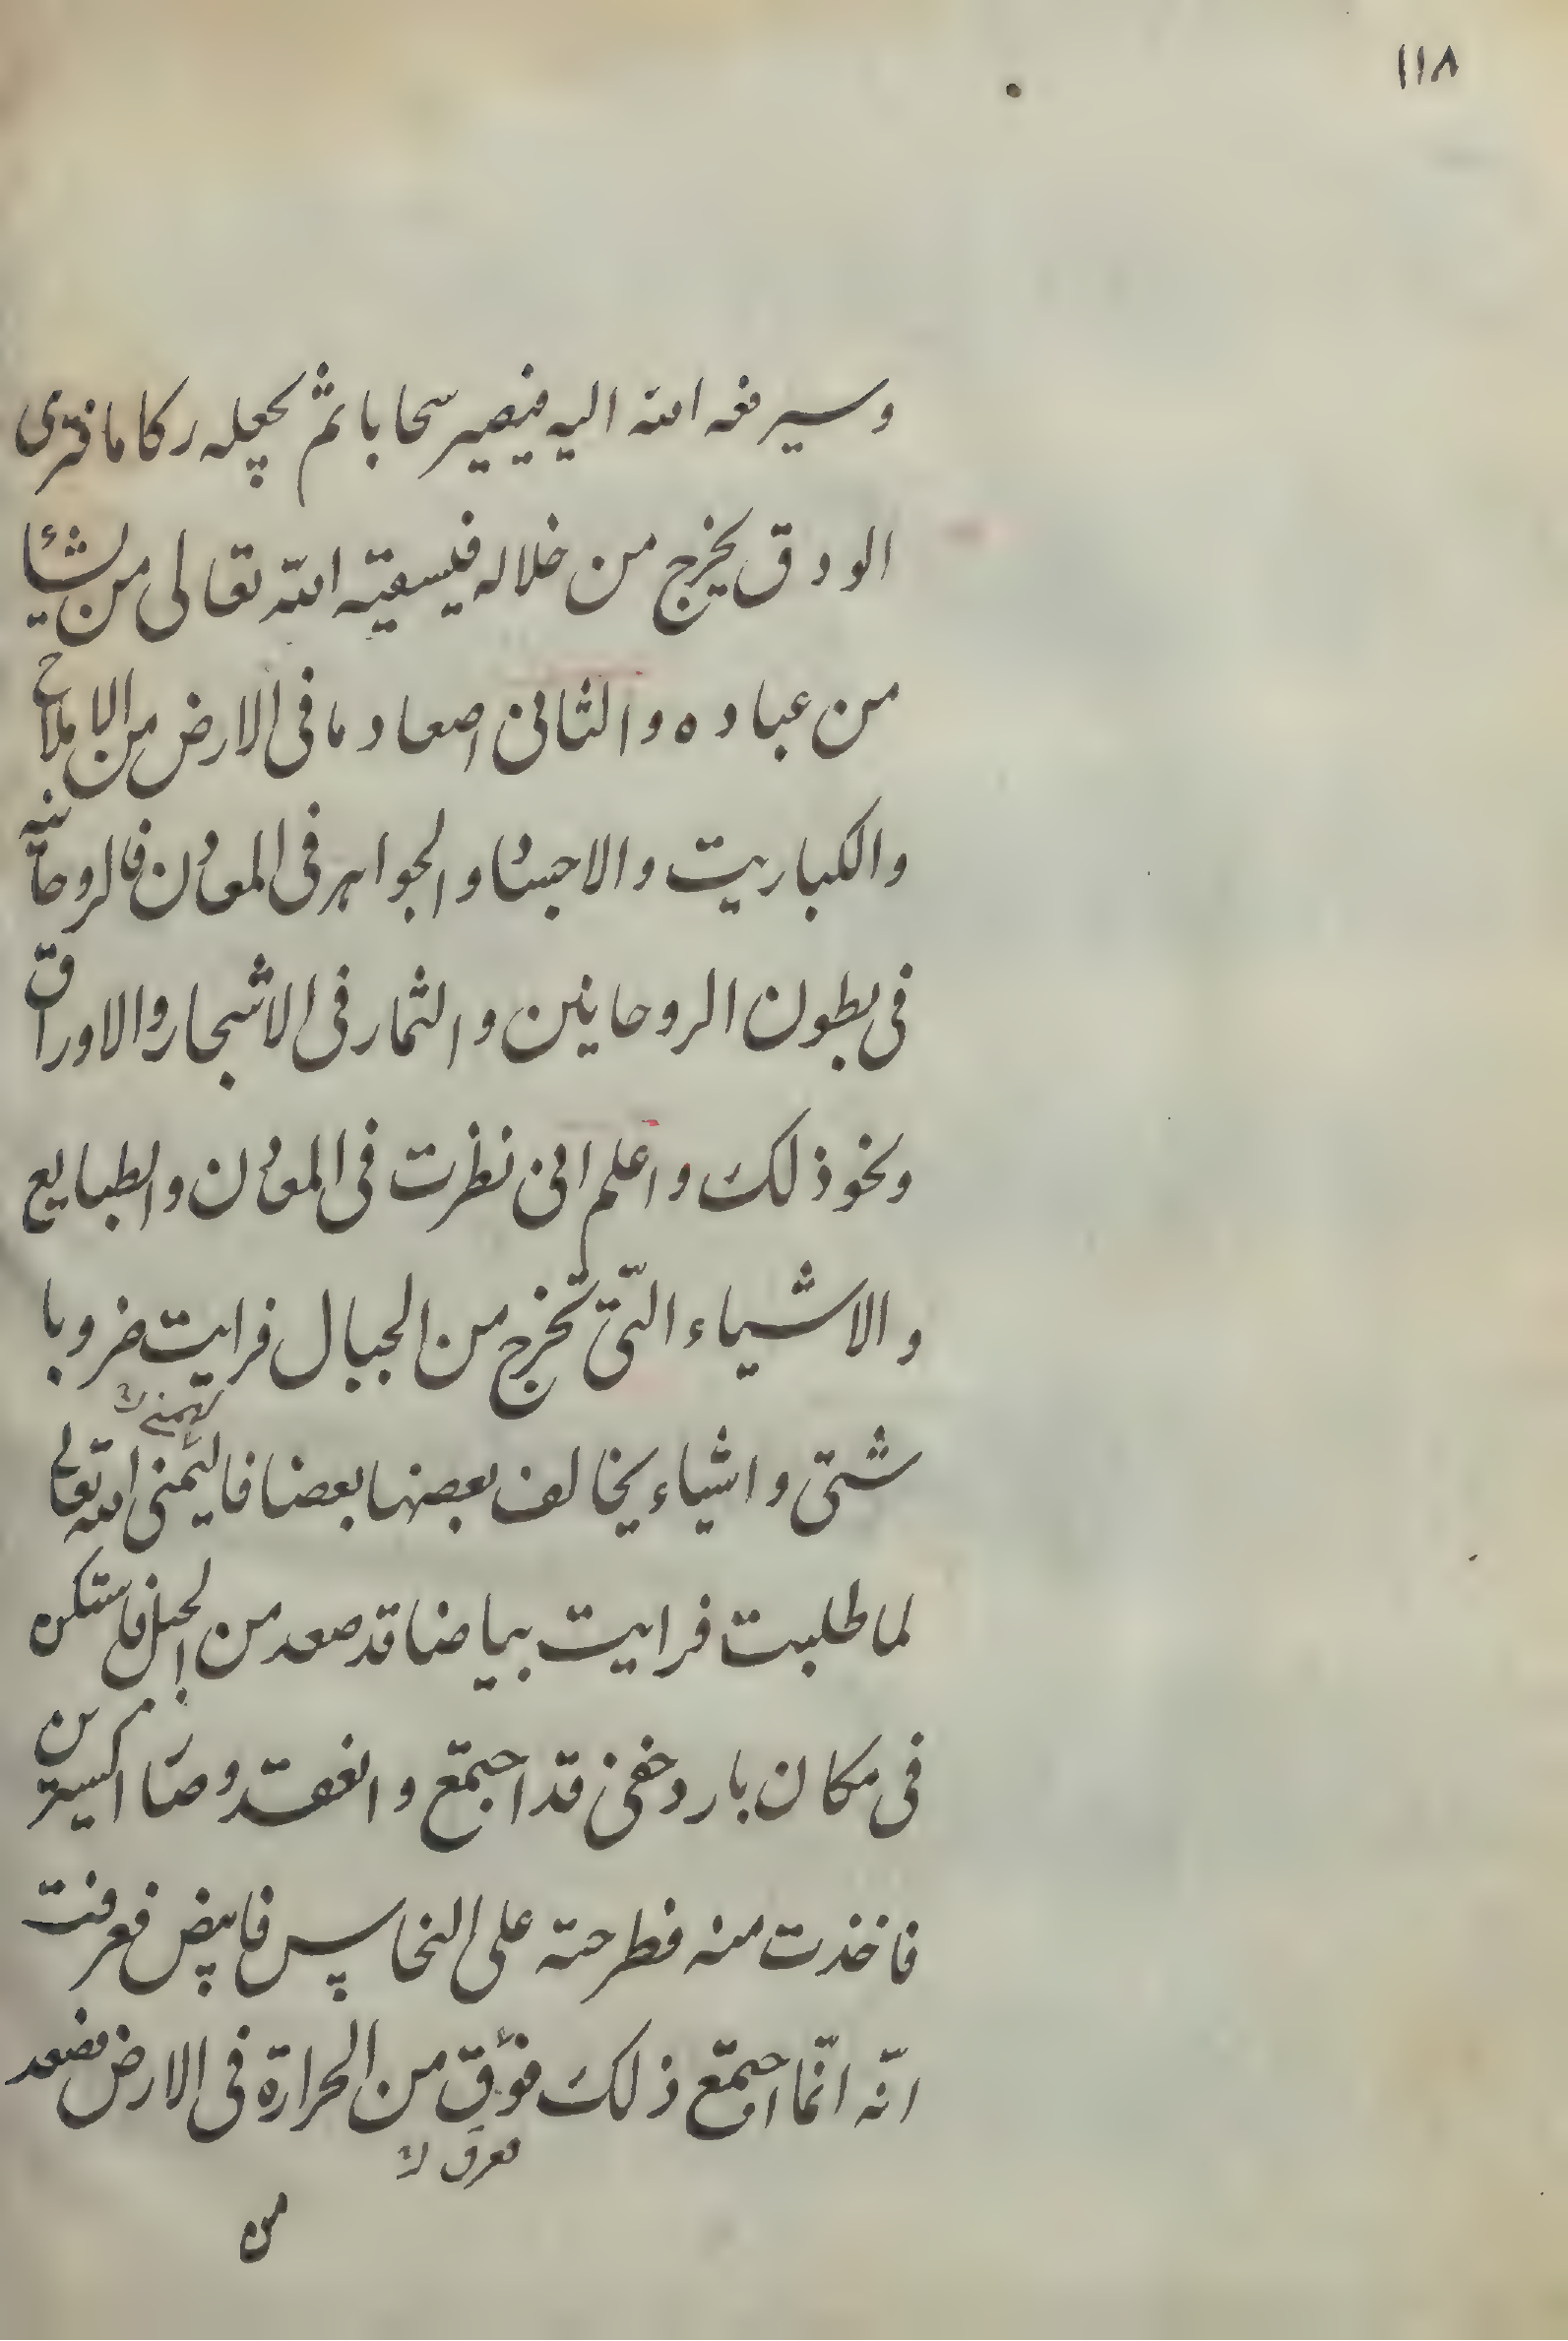 ١١٨
وسيرفعه الله اليه فيصير سحابا ثم يجعله ركاما فترى
الودق يخرج من خلاله فيسقيه الله تعالى من يشاء
من عباده والثانى اصعاد ما فى الارض من الاملاح
والكباريت والاجساد والجواهر فى المعادن فالروحانيه
فى بطون الروحانين والثمار فى الاشجار والاوراق
ونحو ذلك واعلم انى نظرت فى المعادن والطبايع
والاشياء التى تخرج من الجبال فرايت ضروبا
شتى واشياء يخالف بعضها بعضا فاليمنى الله تعالى
لما طلبت فرايت بياضا قد صعد من الجبل فاستكن
فى مكان بارد خفى قد اجتمع وانعقد وصار اكسيرين
فاخذت منه فطرحته على النحاس فابيض فعرفت
انه انما اجتمع ذلك من الحرارة فى الارض فصعد
من